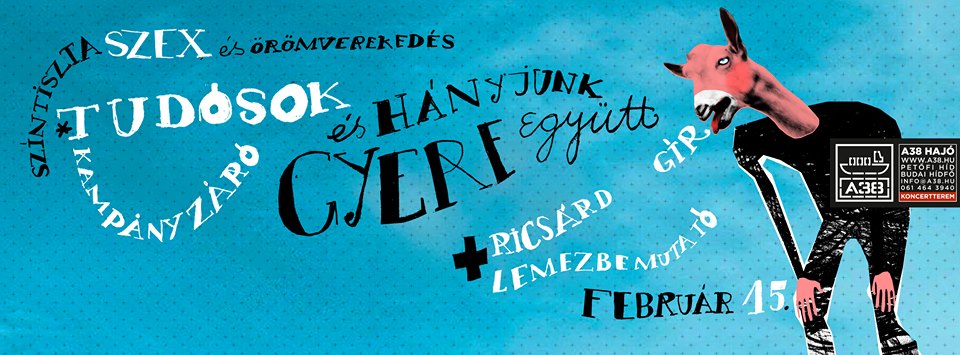 SZÍNTISZTA SZEX és ÖRÖMVEREKEDÉS
* TUDÓSOK
KAMPÁNYZÁRÓ
GYERE és HÁNYJUNK
együtt
+ RICSÁRD GÍR
LEMEZBEMUTATÓ
FEBRUÁR 15.
A38 HAJÓ
WWW.A38.HU
PETŐFI HÍD
BUDAI HÍDFŐ
INFO@A38.HU
061 464 3940
KONCERTTEREM
A38